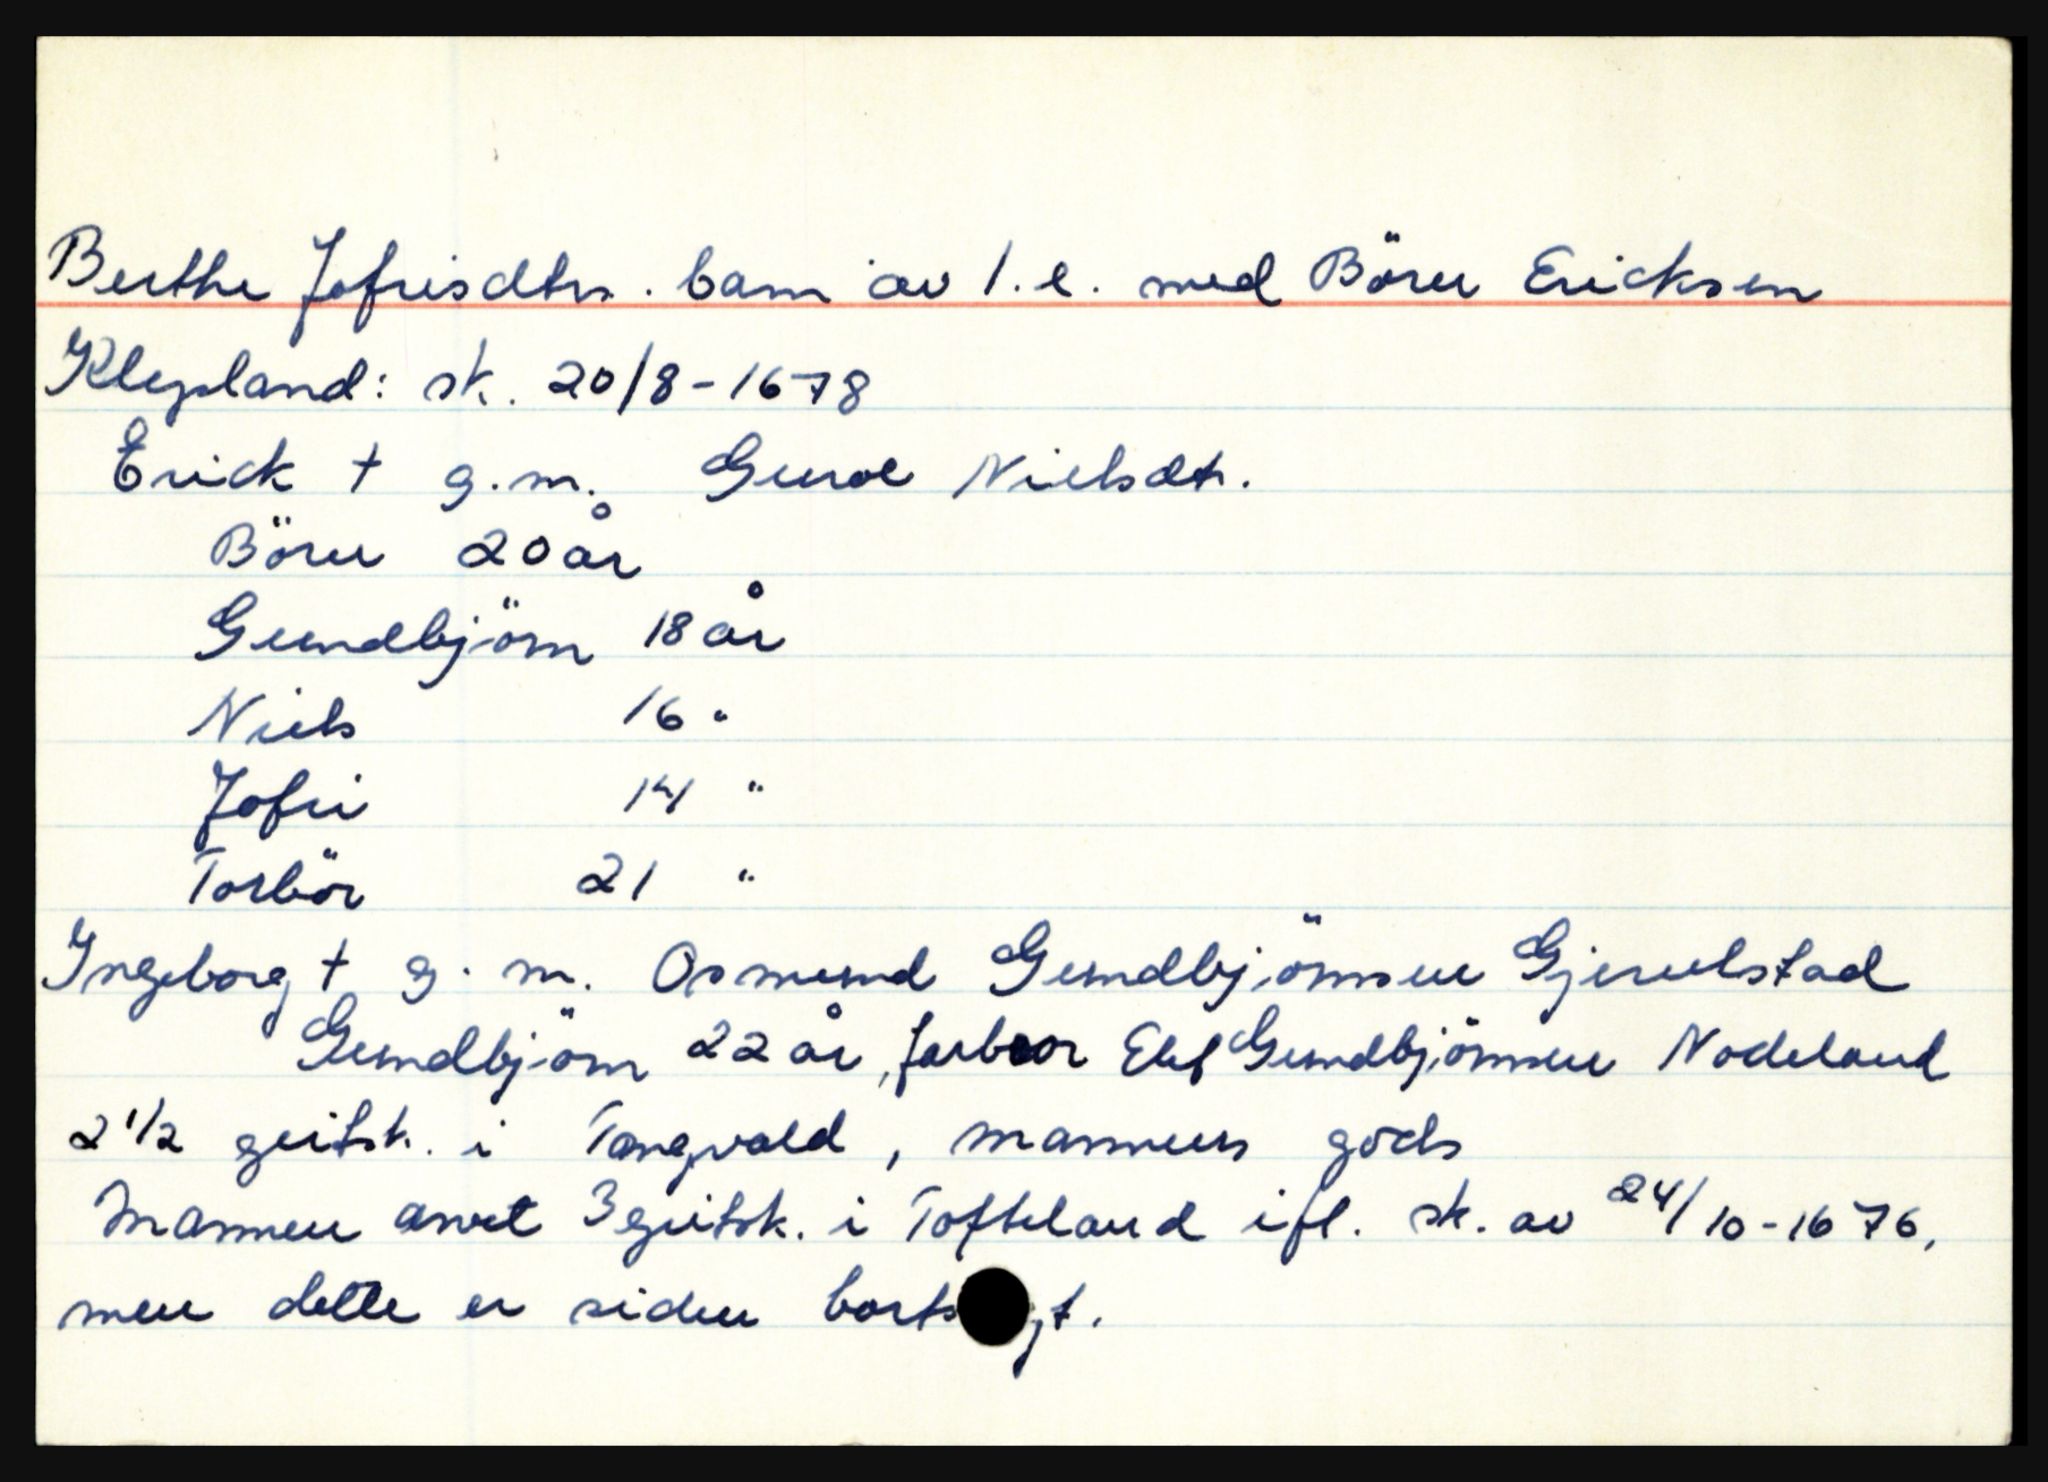 Berthe Jofrisdtr. barn av 1. e. med Börer Ericksen
Klepland: sk. 20/8-1678
Erick † g.m. Guroe Nielsdtr.
Börer 20 år
Gundbjörn 18 år
Niels 16 "
Jofri 14 "
Torbör 21 "
Ingeborg † g. m. Osmund Gundbjörnsen Gjerulstad
Gundbjörn 22 år, farbror Elef Gundbjörnsen Nodeland
2 1/2 geitsk. i Tangvald, mannens gods
Mannen arvet 3 geitsk. i Tofteland ifl. sk. av 24/10-1676,
men dette er siden borts gt.